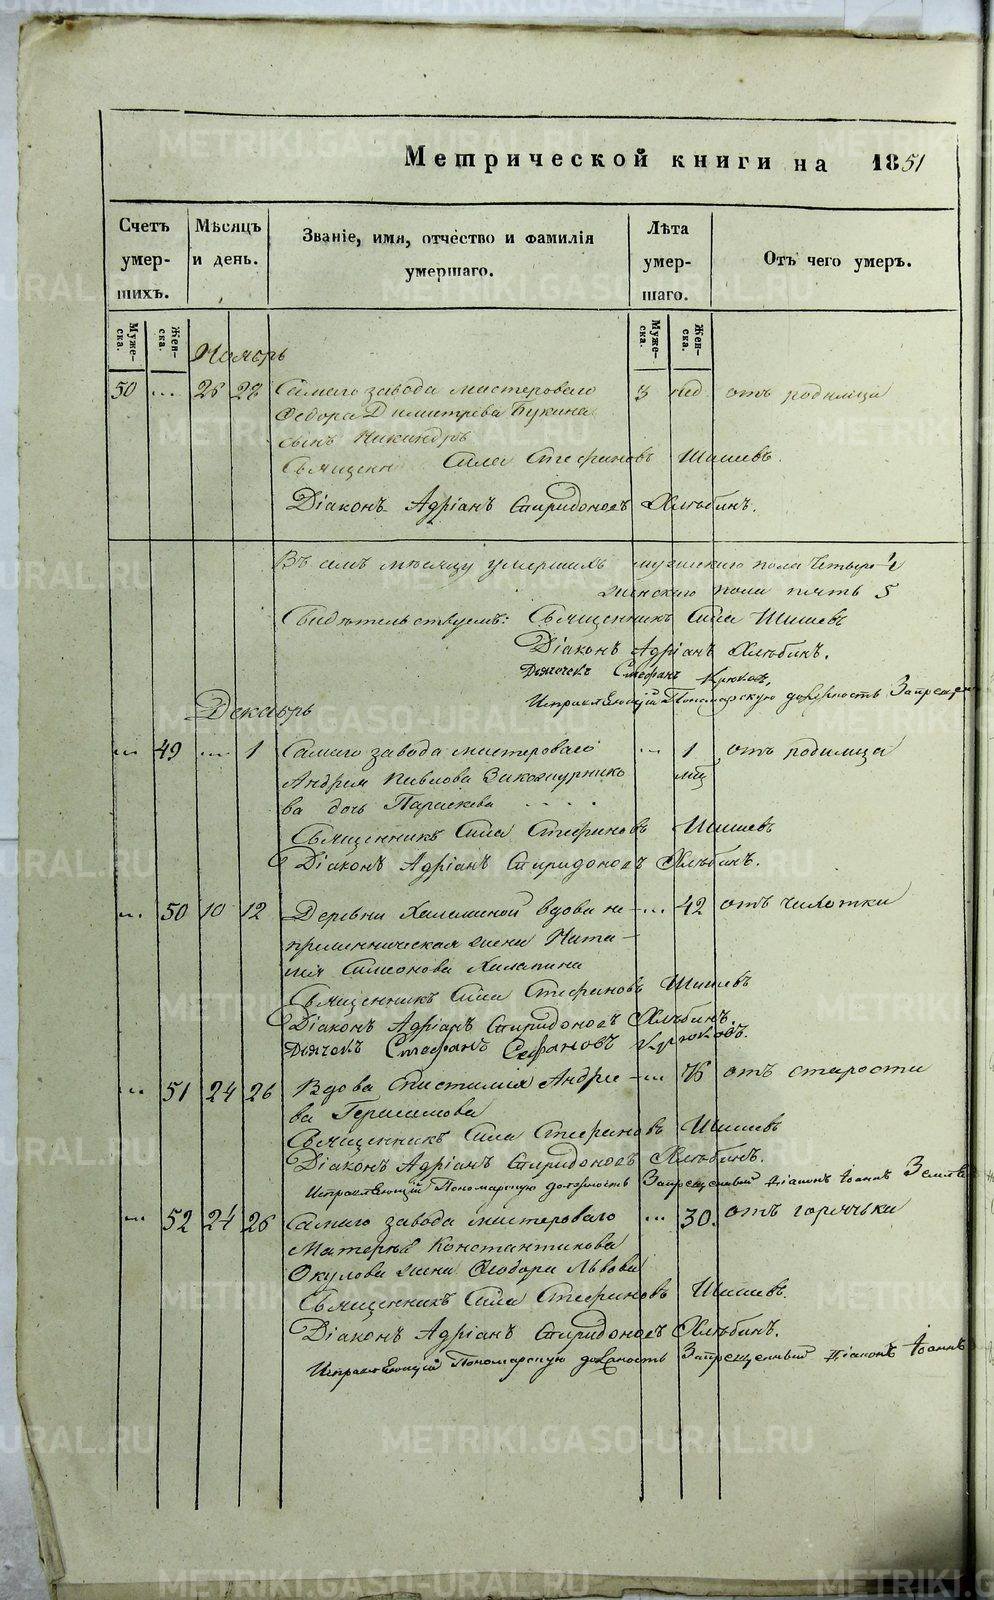 Метрической книги на 1851
Счетъ умер- шихъ.
Мѣсяцъ и день.
Званіе, имя, отчество и фамилія умершаго.
Лѣта умер- шаго.
Отъ чего умеръ.
Муже- ска.
Жен- ска.
Муже- ска.
Жен- ска.
Ноябрь
50 ... 26 28 Самаго завода мастероваго 3 нед отъ родимца
Ѳедора Димитрева Букина
сынъ Никандръ
Священн Сила Стефановъ Шишевъ.
Діаконъ Адріанъ Спиридоновъ Хлѣбинъ.
Въ семъ мѣсяцѣ умершихъ мужескаго пола четыре 4
женскаго пола пять 5
Свидѣтельствуемъ: Священникъ Сила Шишевъ
Діаконъ Адріанъ Хлѣбинъ.
Дьячокъ Стефанъ Крюковъ,
Исправляющій Пономарскую должность Запрещен
Декабрь
... 49 ... 1 Самаго завода мастероваго ... 1 отъ родимца
Андрея Павлова мц
ва дочь Параскева
Священникъ Сила Стефановъ Шишевъ
Діаконъ Адріанъ Спиридоновъ Хлѣбинъ.
... 50 10 12 Деревни вдова не- ... 42 отъ чахотки
премѣнническая жена Ната-
лія Симеонова
Священникъ Сила Стефановъ Шишевъ
Діаконъ Адріанъ Спиридоновъ Хлѣбинъ.
Дьячокъ Стефанъ Крюковъ.
... 51 24 26 Вдова Андрее- ... 76 отъ старости
ва Герасимова
Священникъ Сила Стефановъ Шишевъ
Діаконъ Адріанъ Спиридоновъ Хлѣбинъ.
Исправляющій Пономарскую должность Запрещенный діаконъ Іоаннъ
... 52 24 26 Самаго завода мастероваго ... 30. отъ горячьки
Константинова
Окулова жена Ѳеодора Львова
Священникъ Сила Стефановъ Шишевъ.
Діаконъ Адріанъ Спиридоновъ Хлѣбинъ.
Исправляющій Пономарскую должность Запрещенный діаконъ Іоаннъ
METRIKI.GASO-URAL.RU